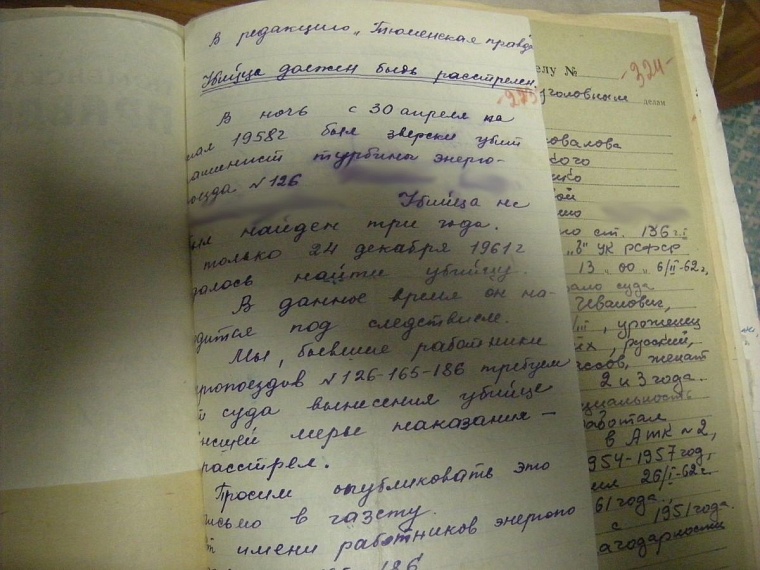 В редакцию „Тюменская правда
Убийца должен быть расстрелен.
-275
В ночь с 30 апреля на
мая 1958г был зверски убит
машинист турбины энерго-
поезда №126
Убийца не
был найден три года.
только 24 декабря 1961г
далось найти убийцу.
В данное время он на-
дится под следствием.
Мы, бывшие работники
энергопоездов №126-165-186 требуем
суда вынесения убийце
высшей меры наказания –
расстрел.
Просим опубликовать это
письмо в газету.
От имени работников энергопо
186
елу № -324-
уголовным делам
овалова
кого
нко
ой
но
о ст. 136 г.i
„в" УК РСФСР
13 „оо„ 6/II-62г,
ало суда
Иванович,
/III, уроженец
их, русский,
ассов, женат
2 и 3 года.
циальность
работал
в АТК №2,
954-1957 год,
26/I-62г.
61 года.,
с 1951 года.
агодарности